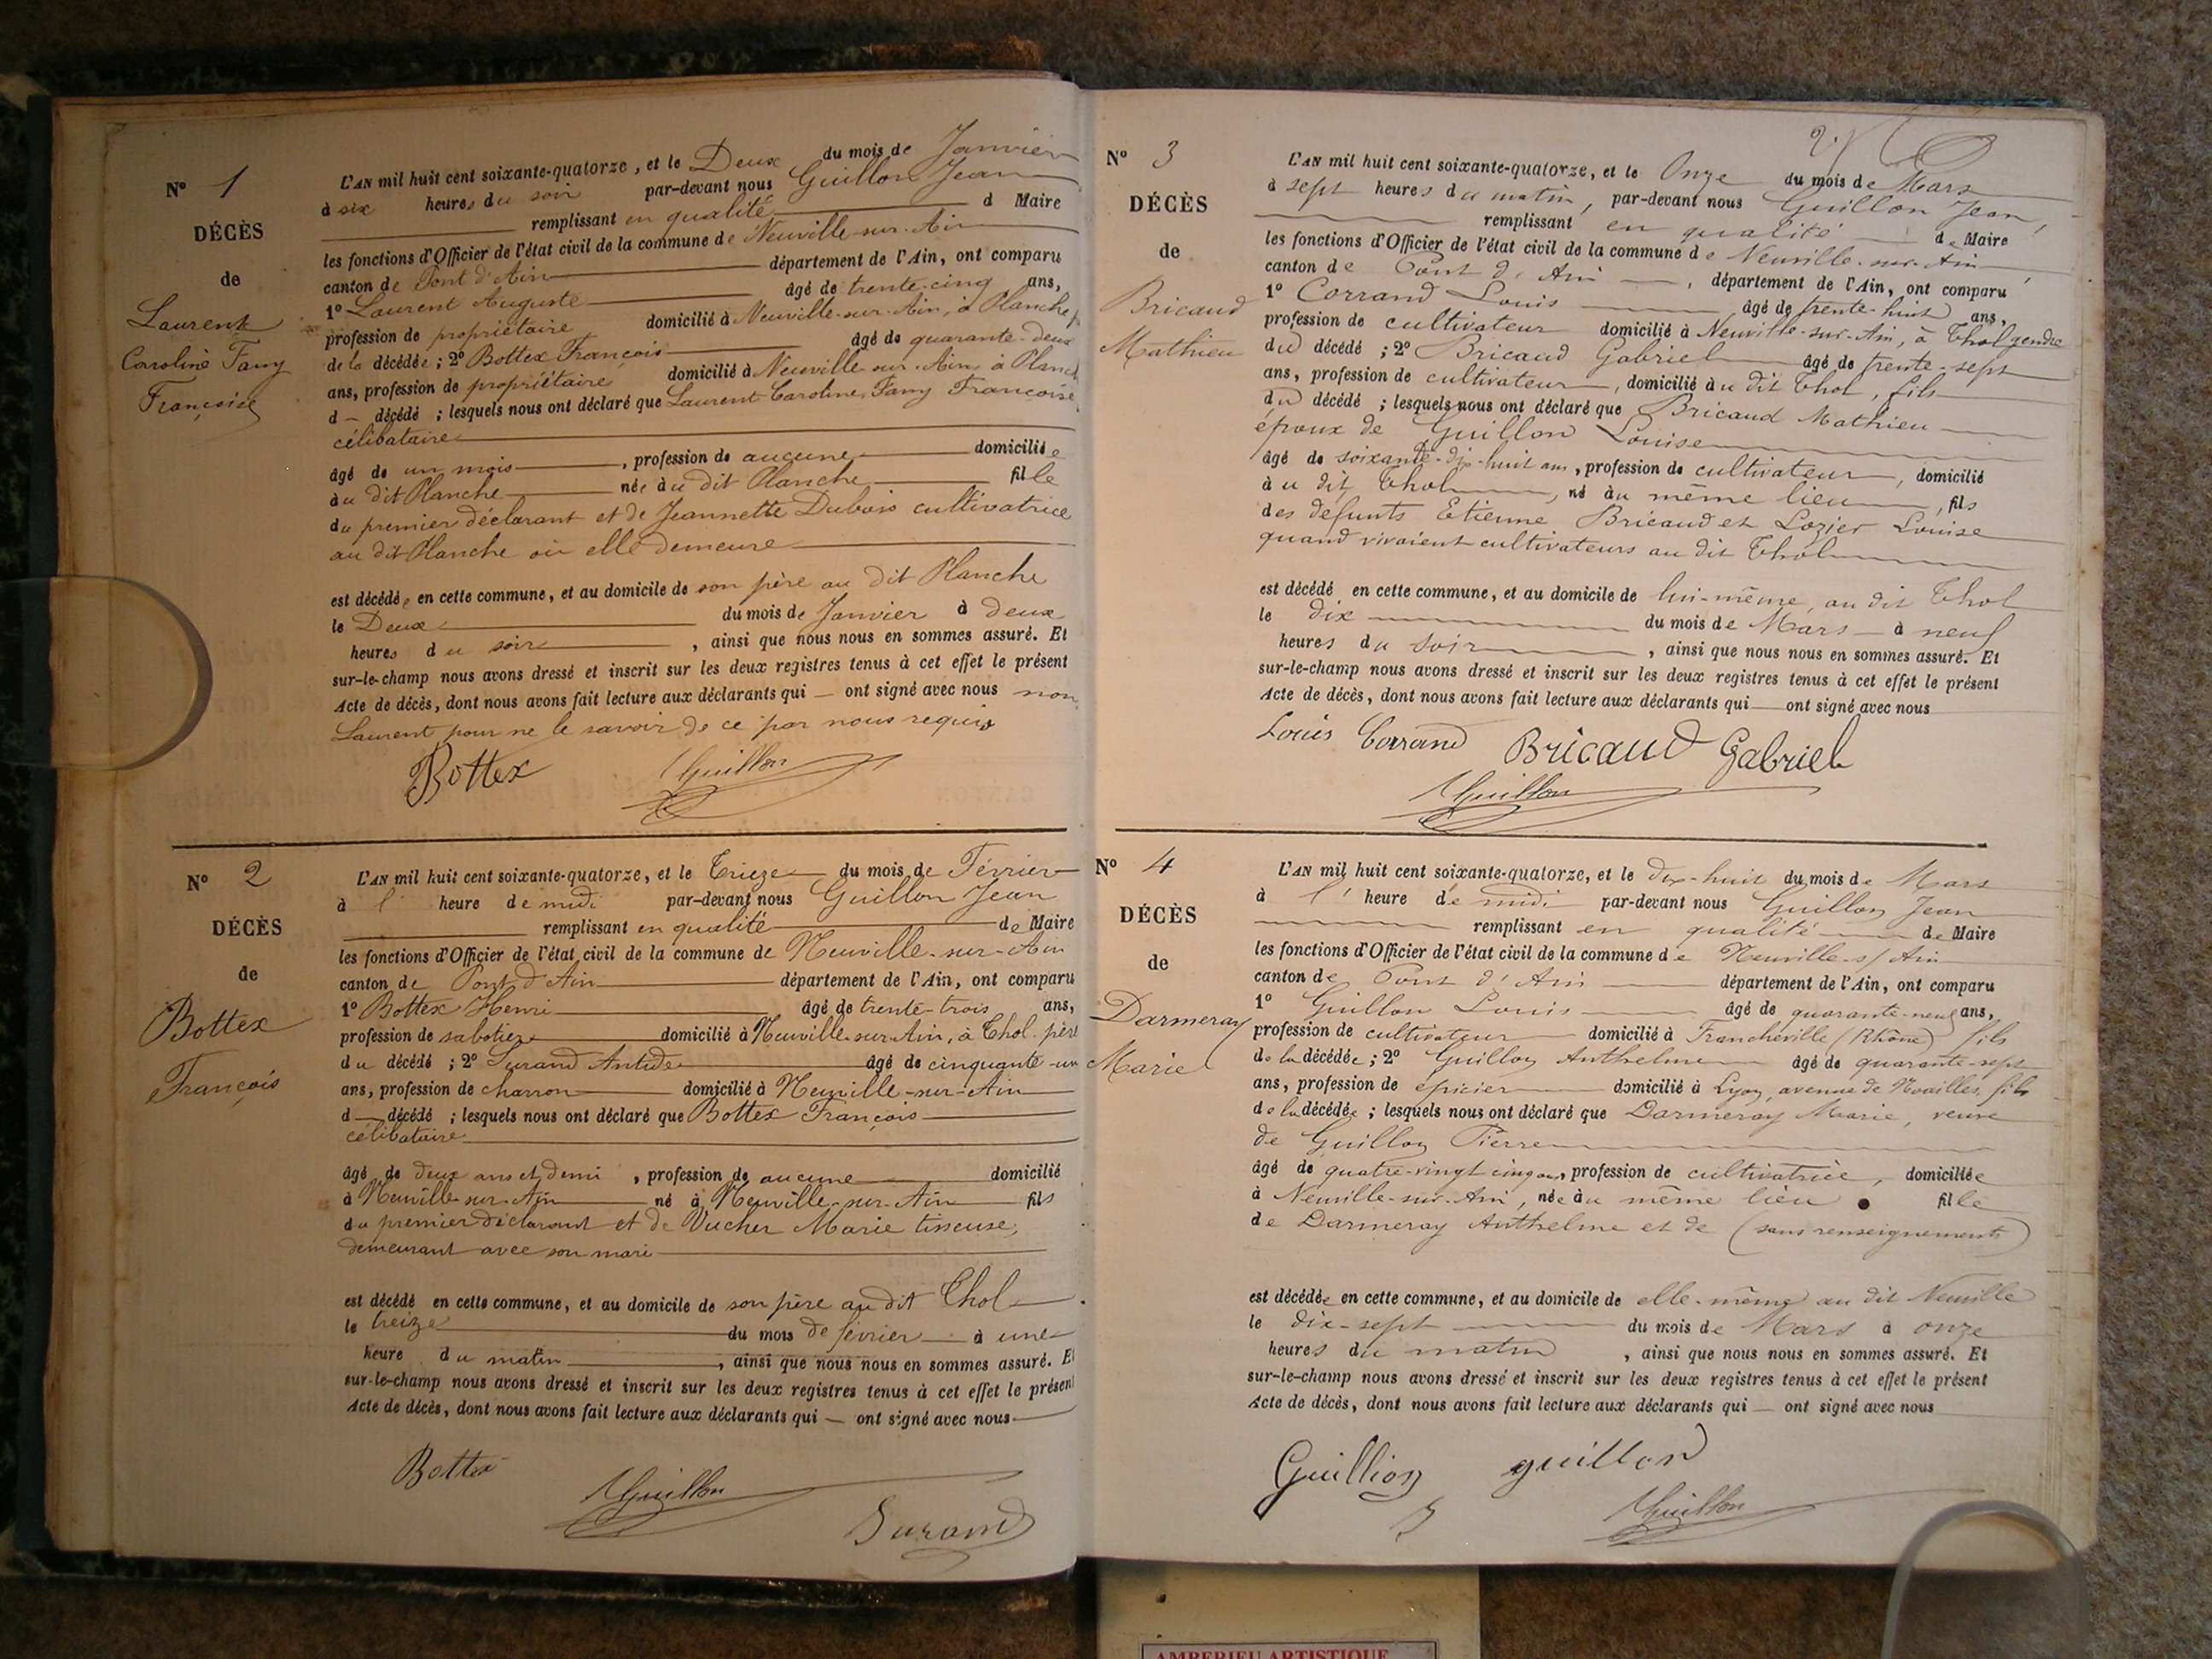 N° 1
DÉCÈS
de
Laurent
Caroline Fany
Françoise
L'AN mil huit cent soixante-quatorze, et le Deux du mois de Janvier
à six heures du soir par-devant nous Guillon Jean
remplissant en qualité d Maire
les fonctions d'Officier de l'état civil de la commune de Neuville-sur-Ain
canton de Pont d'Ain département de l'Ain, ont comparu
1° Laurent Auguste âgé de trente-cinq ans,
profession de propriétaire domicilié à Neuville-sur-Ain, à Planche
de la décédée ; 2° Bottex François âgé de quarante-deux
ans, profession de propriétaire domicilié à Neuville-sur-Ain à Planch
d — décédé ; lesquels nous ont déclaré que Laurent Caroline Fany Françoise
célibataire
âgé de un mois, profession de aucune domiciliée
au dit Planche née au dit Planche fille
du premier déclarant et de Jeannette Dubois cultivatrice
au dit Planche où elle demeure
est décédée en cette commune, et au domicile de son père au dit Planche
le Deux du mois de Janvier à deux
heures du soir, ainsi que nous nous en sommes assuré. Et
sur-le-champ nous avons dressé et inscrit sur les deux registres tenus à cet effet le présent
Acte de décès, dont nous avons fait lecture aux déclarants qui — ont signé avec nous non
Laurent pour ne le savoir de ce par nous requis
Bottex Guillon
N° 2
DÉCÈS
de
Bottex
François
L'AN mil huit cent soixante-quatorze, et le Treize du mois de Février
à l' heure de midi par-devant nous Guillon Jean
remplissant en qualité de Maire
les fonctions d'Officier de l'état civil de la commune de Neuville-sur-Ain
canton de Pont d'Ain département de l'Ain, ont comparu
1° Bottex Henri âgé de trente-trois ans,
profession de sabotier domicilié à Neuville-sur-Ain, à Thol père
du décédé ; 2° Durand Antide âgé de cinquante-un
ans, profession de charron domicilié à Neuville-sur-Ain
d — décédé ; lesquels nous ont déclaré que Bottex François
célibataire
âgé de deux ans et demi, profession de aucune domicilié
à Neuville-sur-Ain né à Neuville-sur-Ain fils
du premier déclarant et de Vucher Marie tisseuse,
demeurant avec son mari
est décédé en cette commune, et au domicile de son père au dit Thol
le treize du mois de février à une
heure du matin, ainsi que nous nous en sommes assuré. Et
sur-le-champ nous avons dressé et inscrit sur les deux registres tenus à cet effet le présent
Acte de décès, dont nous avons fait lecture aux déclarants qui — ont signé avec nous
Bottex Guillon
Durand
N° 3
DÉCÈS
de
Bricaud
Mathieu
L'AN mil huit cent soixante-quatorze, et le Onze du mois de Mars
à sept heures du matin, par-devant nous Guillon Jean,
remplissant en qualité de Maire
les fonctions d'Officier de l'état civil de la commune de Neuville-sur-Ain
canton de Pont d'Ain, département de l'Ain, ont comparu
1° Corrand Louis âgé de trente-huit ans,
profession de cultivateur domicilié à Neuville-sur-Ain, à Thol gendre
du décédé ; 2° Bricaud Gabriel âgé de trente-sept
ans, profession de cultivateur, domicilié au dit Thol, fils
du décédé ; lesquels nous ont déclaré que Bricaud Mathieu
époux de Guillon Louise
âgé de soixante-dix-huit ans, profession de cultivateur, domicilié
au dit Thol, né au même lieu, fils
des défunts Etienne Bricaud et Lozier Louise
quand vivaient cultivateurs au dit Thol
est décédé en cette commune, et au domicile de lui-même, au dit Thol
le dix du mois de Mars à neuf
heures du soir, ainsi que nous nous en sommes assuré. Et
sur-le-champ nous avons dressé et inscrit sur les deux registres tenus à cet effet le présent
Acte de décès, dont nous avons fait lecture aux déclarants qui — ont signé avec nous
Louis Corrand Bricaud Gabriel
Guillon
N° 4
DÉCÈS
de
Darmeray
Marie
L'AN mil huit cent soixante-quatorze, et le dix-huit du mois de Mars
à l' heure de midi par-devant nous Guillon Jean
remplissant en qualité de Maire
les fonctions d'Officier de l'état civil de la commune de Neuville-s/Ain
canton de Pont d'Ain département de l'Ain, ont comparu
1° Guillon Louis âgé de quarante-neuf ans,
profession de cultivateur domicilié à Francheville (Rhône) fils
de la décédée ; 2° Guillon Anthelme âgé de quarante-sept
ans, profession de épicier domicilié à Lyon, avenue de Noailles, fils
de la décédée ; lesquels nous ont déclaré que Darmeray Marie, veuve
de Guillon Pierre
âgé de quatre-vingt cinq ans, profession de cultivatrice, domiciliée
à Neuville-sur-Ain, née au même lieu fille
de Darmeray Anthelme et de (sans renseignements)
est décédée en cette commune, et au domicile de elle-même au dit Neuville
le dix-sept du mois de Mars à onze
heures du matin, ainsi que nous nous en sommes assuré. Et
sur-le-champ nous avons dressé et inscrit sur les deux registres tenus à cet effet le présent
Acte de décès, dont nous avons fait lecture aux déclarants qui — ont signé avec nous
Guillion guillon
Guillon
AMBERIEU ARTISTIQUE